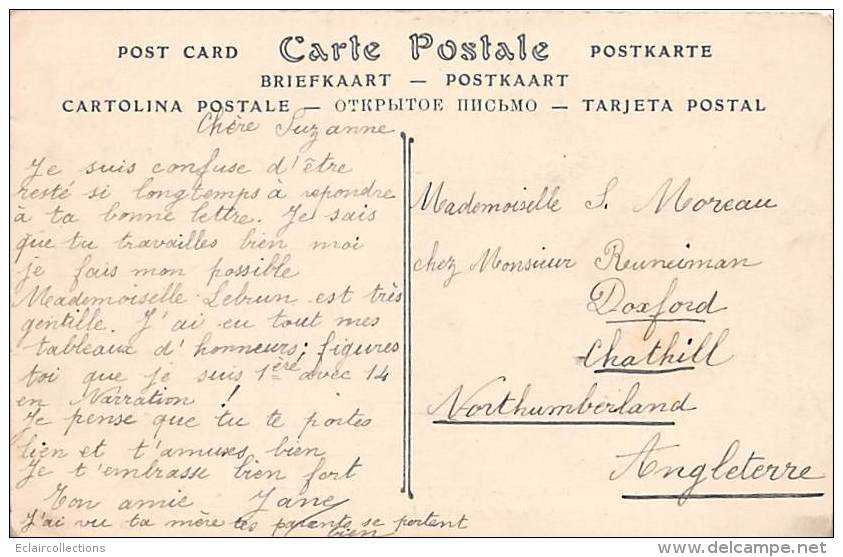 POST CARD Carte Postale POSTKARTE
BRIEFKAART — POSTKAART
CARTOLINA POSTALE — ОТКРЫТОЕ ПИСЬМО — TARJETA POSTAL
Chère Suzanne
Je suis confuse d'être
resté si longtemps à repondre
à ta bonne lettre. Je sais
que tu travailles bien moi
je fais mon possible
Mademoiselle Lebrun est très
gentille. J'ai eu tout mes
tableaux d'honneurs; figures
toi que je suis 1ère avec 14
en Narration !
Je pense que tu te portes
bien et t'amuses bien
Je t'embrasse bien fort
Ton amie Jane
J'ai vu ta mère tes parents se portent
bien
Mademoiselle S. Moreau
chez Monsieur Reuneiman
Doxford
Chathill
Northumberland
Angleterre
Eclaircollections
delcampe.net